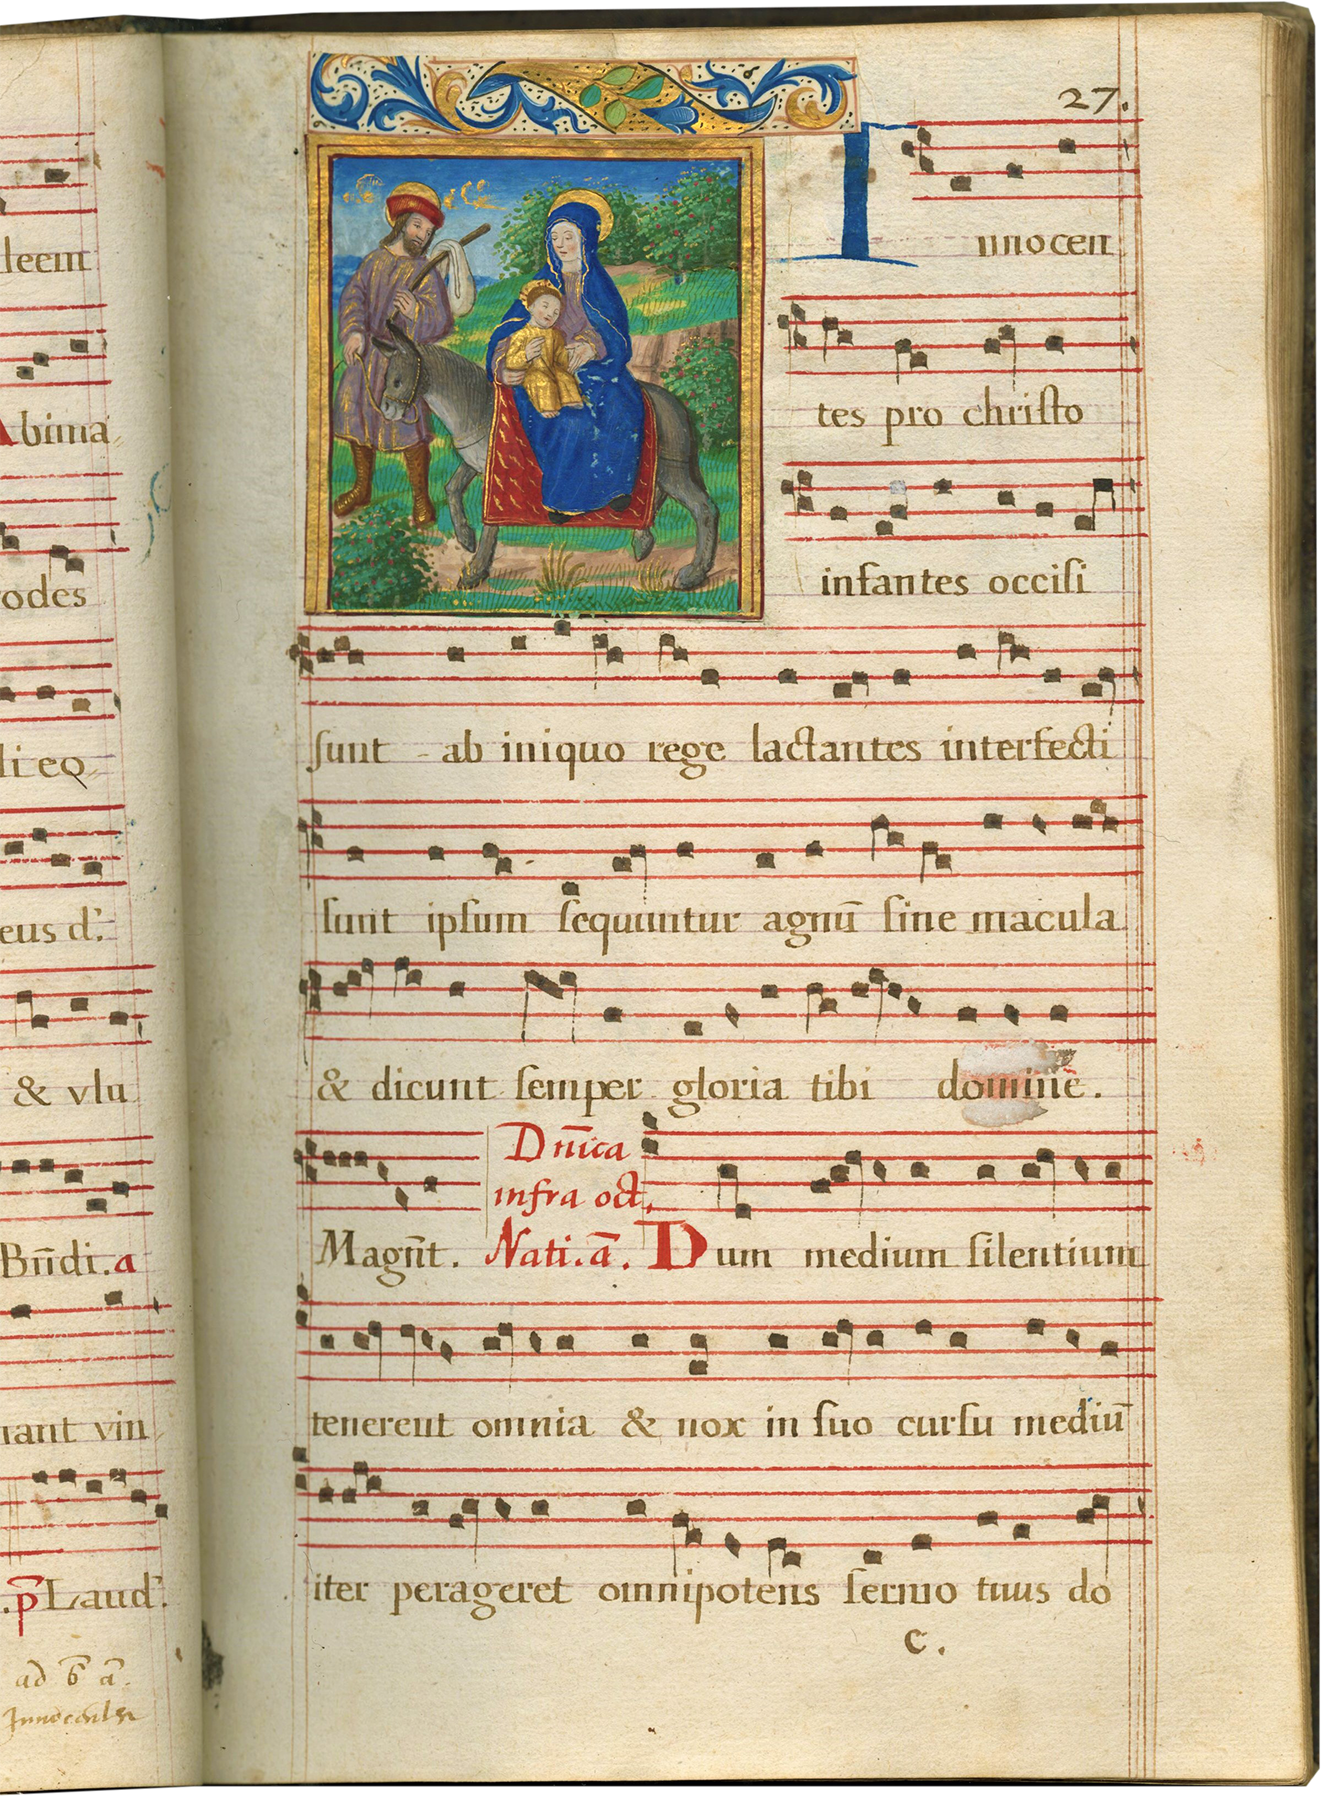 deem
Abima
rodes
li eq
eus d.
& vlu
Bñdi. a
nant vin
. p̄ Laud.
ad b̄ ā.
27.
I nnocen
tes pro christo
infantes occisi
sunt - ab iniquo rege lactantes interfecti
sunt ipsum sequuntur agnū sine macula
& dicunt semper gloria tibi domine.
Dñica
infra oct.
Magñt. Nati. ā. Dum medium silentium
tenerent omnia & nox in suo cursu mediū
iter perageret omnipotens sermo tuus do
c.